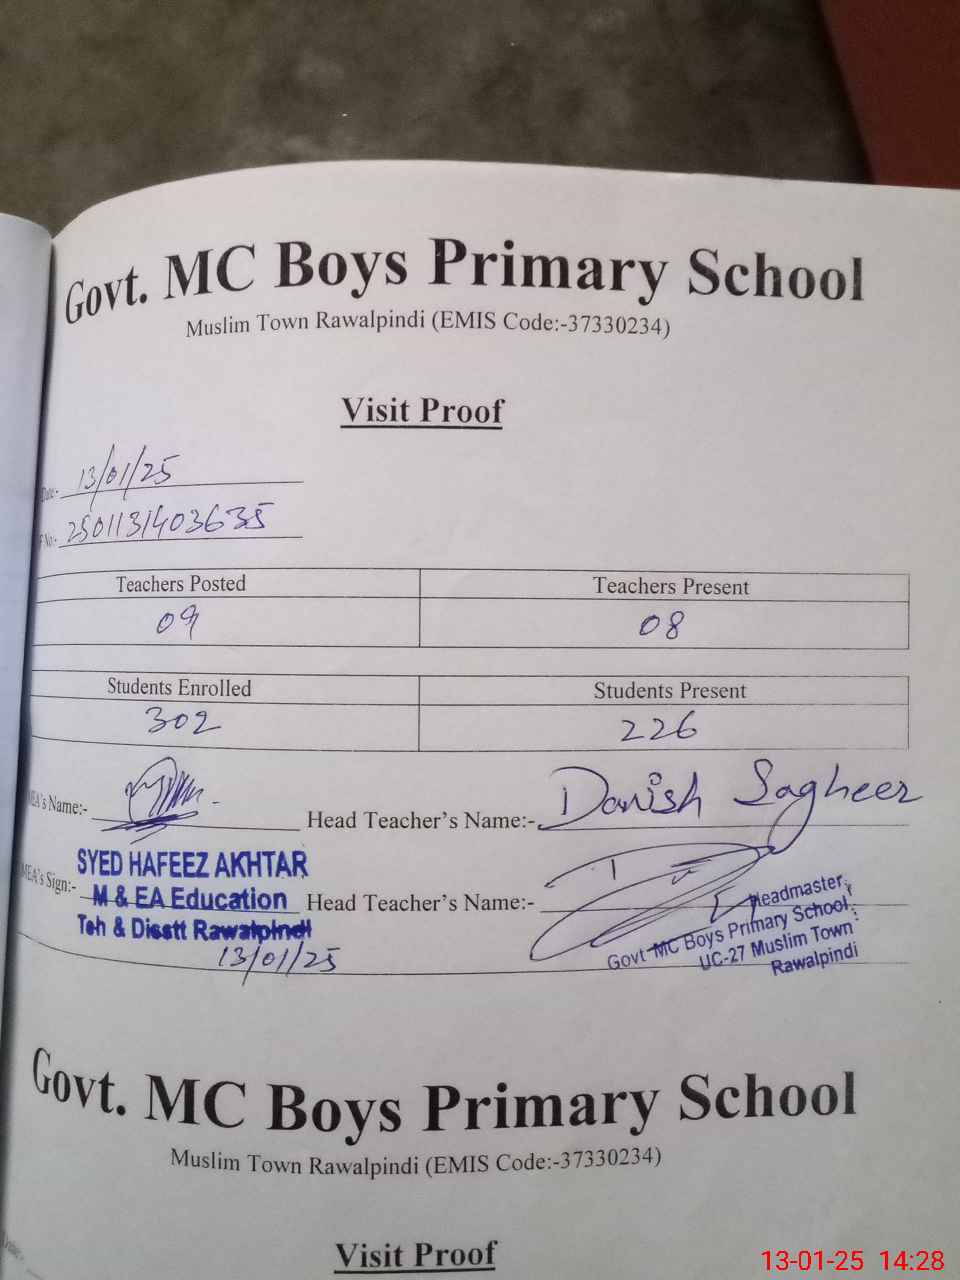 Govt. MC Boys Primary School
Muslim Town Rawalpindi (EMIS Code:-37330234)
Visit Proof
Date:- 13/01/25
No:- 2501131403635
Teachers Posted Teachers Present
09 08
Students Enrolled Students Present
302 226
MEA's Name:- Head Teacher's Name:- Danish Sagheer
MEA's Sign:- Head Teacher's Name:-
SYED HAFEEZ AKHTAR
M & EA Education
Teh & Disstt Rawalpindi
13/01/25
Headmaster
Govt MC Boys Primary School
UC-27 Muslim Town
Rawalpindi
Govt. MC Boys Primary School
Muslim Town Rawalpindi (EMIS Code:-37330234)
Visit Proof
13-01-25 14:28